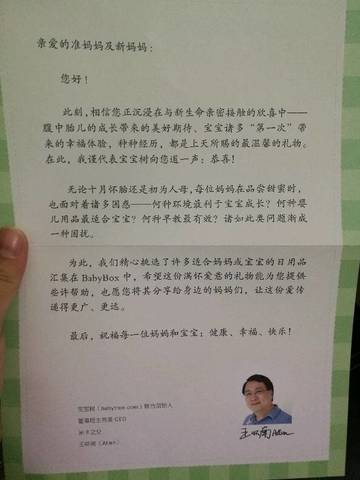 亲爱的准妈妈及新妈妈：
您好！
此刻，相信您正沉浸在与新生命亲密接触的欣喜中——
腹中胎儿的成长带来的美好期待、宝宝诸多“第一次”带
来的幸福体验，种种经历，都是上天所赐的最温馨的礼物。
在此，我谨代表宝宝树向您道一声：恭喜！
无论十月怀胎还是初为人母，每位妈妈在品尝甜蜜时，
也面对着诸多困惑——何种环境最利于宝宝成长？何种婴
儿用品最适合宝宝？何种早教最有效？诸如此类问题渐成
一种困扰。
为此，我们精心挑选了许多适合妈妈或宝宝的日用品
汇集在 BabyBox 中，希望这份满怀爱意的礼物能为您提供
些许帮助，也愿您将其分享给身边的妈妈们，让这份爱传
递得更广、更远。
最后，祝福每一位妈妈和宝宝：健康、幸福、快乐！
宝宝树（Babytree.com）联合创始人
董事局主席兼 CEO
米卡之父
王怀南（Allen）
王怀南 Allen